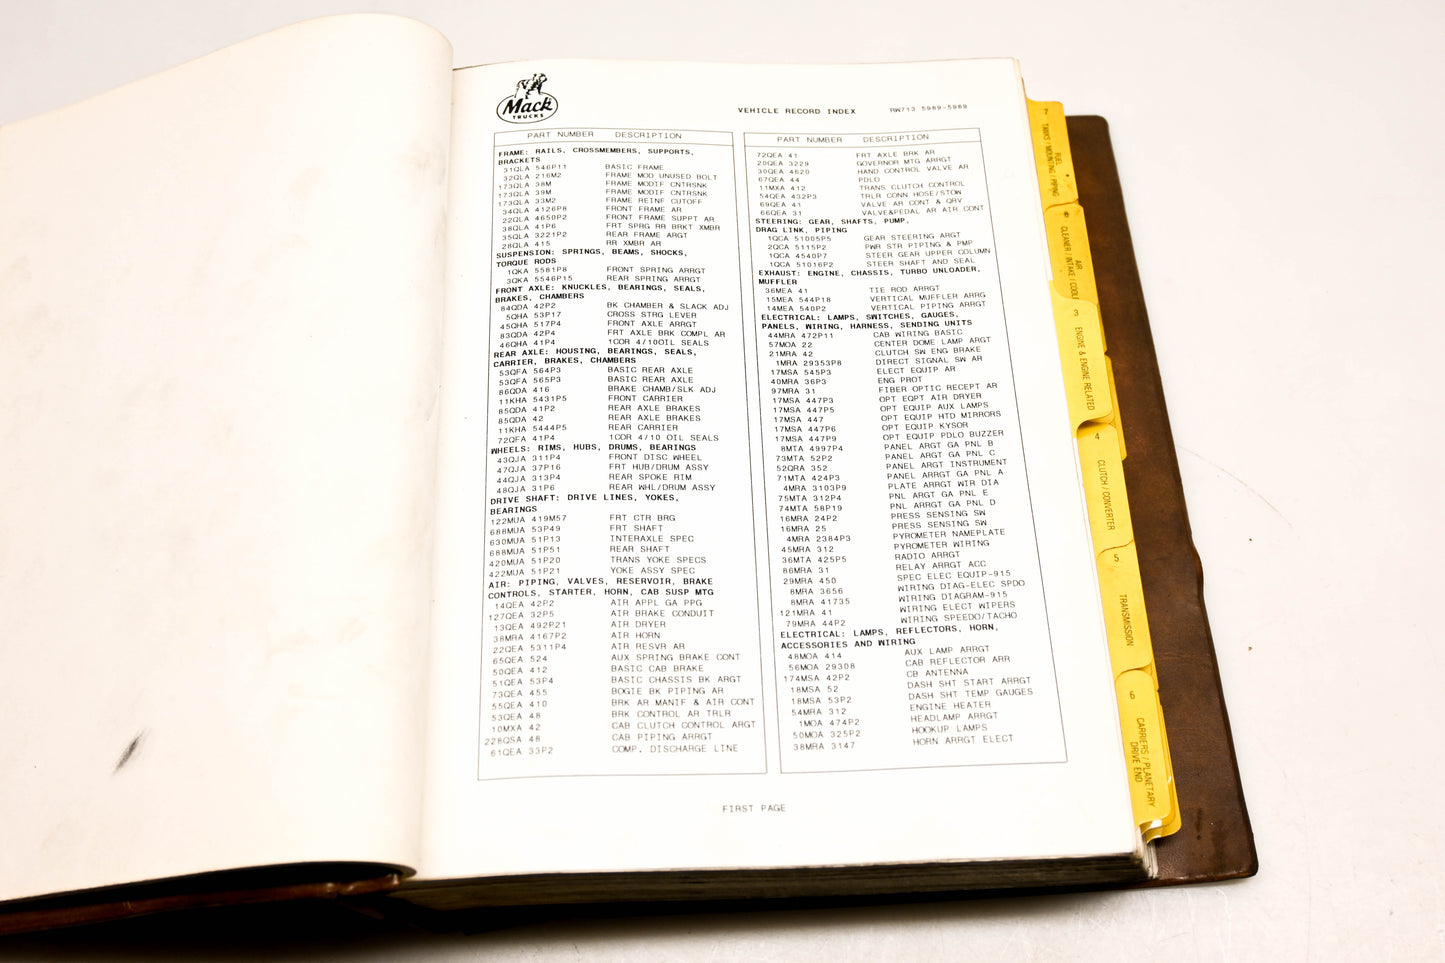 Mack
TRUCKS
VEHICLE RECORD INDEX RW713 5989-5989
PART NUMBER DESCRIPTION
FRAME: RAILS, CROSSMEMBERS, SUPPORTS,
BRACKETS
31QLA 546P11 BASIC FRAME
32QLA 216M2 FRAME MOD UNUSED BOLT
173QLA 38M FRAME MODIF CNTRSNK
173QLA 39M FRAME MODIF CNTRSNK
173QLA 33M2 FRAME REINF CUTOFF
34QLA 4126P8 FRONT FRAME AR
22QLA 4650P2 FRONT FRAME SUPPT AR
38QLA 41P6 FRT SPRG RR BRKT XMBR
35QLA 3221P2 REAR FRAME ARGT
28QLA 415 RR XMBR AR
SUSPENSION: SPRINGS, BEAMS, SHOCKS,
TORQUE RODS
1QKA 5581P8 FRONT SPRING ARRGT
3QKA 5546P15 REAR SPRING ARRGT
FRONT AXLE: KNUCKLES, BEARINGS, SEALS,
BRAKES, CHAMBERS
84QDA 42P2 BK CHAMBER & SLACK ADJ
5QHA 53P17 CROSS STRG LEVER
45QHA 517P4 FRONT AXLE ARRGT
83QDA 42P4 FRT AXLE BRK COMPL AR
46QHA 41P4 1COR 4/10OIL SEALS
REAR AXLE: HOUSING, BEARINGS, SEALS,
CARRIER, BRAKES, CHAMBERS
53QFA 564P3 BASIC REAR AXLE
53QFA 565P3 BASIC REAR AXLE
86QDA 416 BRAKE CHAMB/SLK ADJ
11KHA 5431P5 FRONT CARRIER
85QDA 41P2 REAR AXLE BRAKES
85QDA 42 REAR AXLE BRAKES
11KHA 5444P5 REAR CARRIER
72QFA 41P4 1COR 4/10 OIL SEALS
WHEELS: RIMS, HUBS, DRUMS, BEARINGS
43QJA 311P4 FRONT DISC WHEEL
47QJA 37P16 FRT HUB/DRUM ASSY
44QJA 313P4 REAR SPOKE RIM
48QJA 31P6 REAR WHL/DRUM ASSY
DRIVE SHAFT: DRIVE LINES, YOKES,
BEARINGS
122MUA 419M57 FRT CTR BRG
688MUA 53P49 FRT SHAFT
630MUA 51P13 INTERAXLE SPEC
688MUA 51P51 REAR SHAFT
420MUA 51P20 TRANS YOKE SPECS
422MUA 51P21 YOKE ASSY SPEC
AIR: PIPING, VALVES, RESERVOIR, BRAKE
CONTROLS, STARTER, HORN, CAB SUSP MTG
14QEA 42P2 AIR APPL GA PPG
127QEA 32P5 AIR BRAKE CONDUIT
13QEA 492P21 AIR DRYER
38MRA 4167P2 AIR HORN
22QEA 5311P4 AIR RESVR AR
65QEA 524 AUX SPRING BRAKE CONT
50QEA 412 BASIC CAB BRAKE
51QEA 53P4 BASIC CHASSIS BK ARGT
73QEA 455 BOGIE BK PIPING AR
55QEA 410 BRK AR MANIF & AIR CONT
53QEA 48 BRK CONTROL AR TRLR
10MXA 42 CAB CLUTCH CONTROL ARGT
228QSA 48 CAB PIPING ARRGT
61QEA 33P2 COMP. DISCHARGE LINE
PART NUMBER DESCRIPTION
72QEA 41 FRT AXLE BRK AR
20QEA 3229 GOVERNOR MTG ARRGT
30QEA 4620 HAND CONTROL VALVE AR
67QEA 44 PDLO
11MXA 412 TRANS CLUTCH CONTROL
54QEA 432P3 TRLR CONN HOSE/STOW
69QEA 41 VALVE AR CONT & QRV
66QEA 31 VALVE&PEDAL AR AIR CONT
STEERING: GEAR, SHAFTS, PUMP,
DRAG LINK, PIPING
1QCA 51005P5 GEAR STEERING ARGT
2QCA 5115P2 PWR STR PIPING & PMP
1QCA 4540P7 STEER GEAR UPPER COLUMN
1QCA 51016P2 STEER SHAFT AND SEAL
EXHAUST: ENGINE, CHASSIS, TURBO UNLOADER,
MUFFLER
36MEA 41 TIE ROD ARRGT
15MEA 544P18 VERTICAL MUFFLER ARRG
14MEA 540P2 VERTICAL PIPING ARRGT
ELECTRICAL: LAMPS, SWITCHES, GAUGES,
PANELS, WIRING, HARNESS, SENDING UNITS
44MRA 472P11 CAB WIRING BASIC
57MOA 22 CENTER DOME LAMP ARGT
21MRA 42 CLUTCH SW ENG BRAKE
1MRA 29353P8 DIRECT SIGNAL SW AR
17MSA 545P3 ELECT EQUIP AR
40MRA 36P3 ENG PROT
97MRA 31 FIBER OPTIC RECEPT AR
17MSA 447P3 OPT EQPT AIR DRYER
17MSA 447P5 OPT EQUIP AUX LAMPS
17MSA 447 OPT EQUIP HTD MIRRORS
17MSA 447P6 OPT EQUIP KYSOR
17MSA 447P9 OPT EQUIP PDLO BUZZER
8MTA 4997P4 PANEL ARGT GA PNL B
73MTA 52P2 PANEL ARGT GA PNL C
52QRA 352 PANEL ARGT INSTRUMENT
71MTA 424P3 PANEL ARRGT GA PNL A
4MRA 3103P9 PLATE ARRGT WIR DIA
75MTA 312P4 PNL ARGT GA PNL E
74MTA 58P19 PNL ARRGT GA PNL D
16MRA 24P2 PRESS SENSING SW
16MRA 25 PRESS SENSING SW
4MRA 2384P3 PYROMETER NAMEPLATE
45MRA 312 PYROMETER WIRING
36MTA 425P5 RADIO ARRGT
86MRA 31 RELAY ARRGT ACC
29MRA 450 SPEC ELEC EQUIP-915
8MRA 3656 WIRING DIAG-ELEC SPDO
8MRA 41735 WIRING DIAGRAM-915
121MRA 41 WIRING ELECT WIPERS
79MRA 44P2 WIRING SPEEDO/TACHO
ELECTRICAL: LAMPS, REFLECTORS, HORN,
ACCESSORIES AND WIRING
48MOA 414 AUX LAMP ARRGT
56MOA 29308 CAB REFLECTOR ARR
174MSA 42P2 CB ANTENNA
18MSA 52 DASH SHT START ARRGT
18MSA 53P2 DASH SHT TEMP GAUGES
54MRA 312 ENGINE HEATER
1MOA 474P2 HEADLAMP ARRGT
50MOA 325P2 HOOKUP LAMPS
38MRA 3147 HORN ARRGT ELECT
FIRST PAGE
7
FUEL
TANKS / MOUNTING / PIPING
AIR
CLEANER / INTAKE /
3
ENGINE & ENGINE RELATED
4
CLUTCH / CONVERTER
5
TRANSMISSION
6
CARRIERS / PLANETARY
DRIVE END